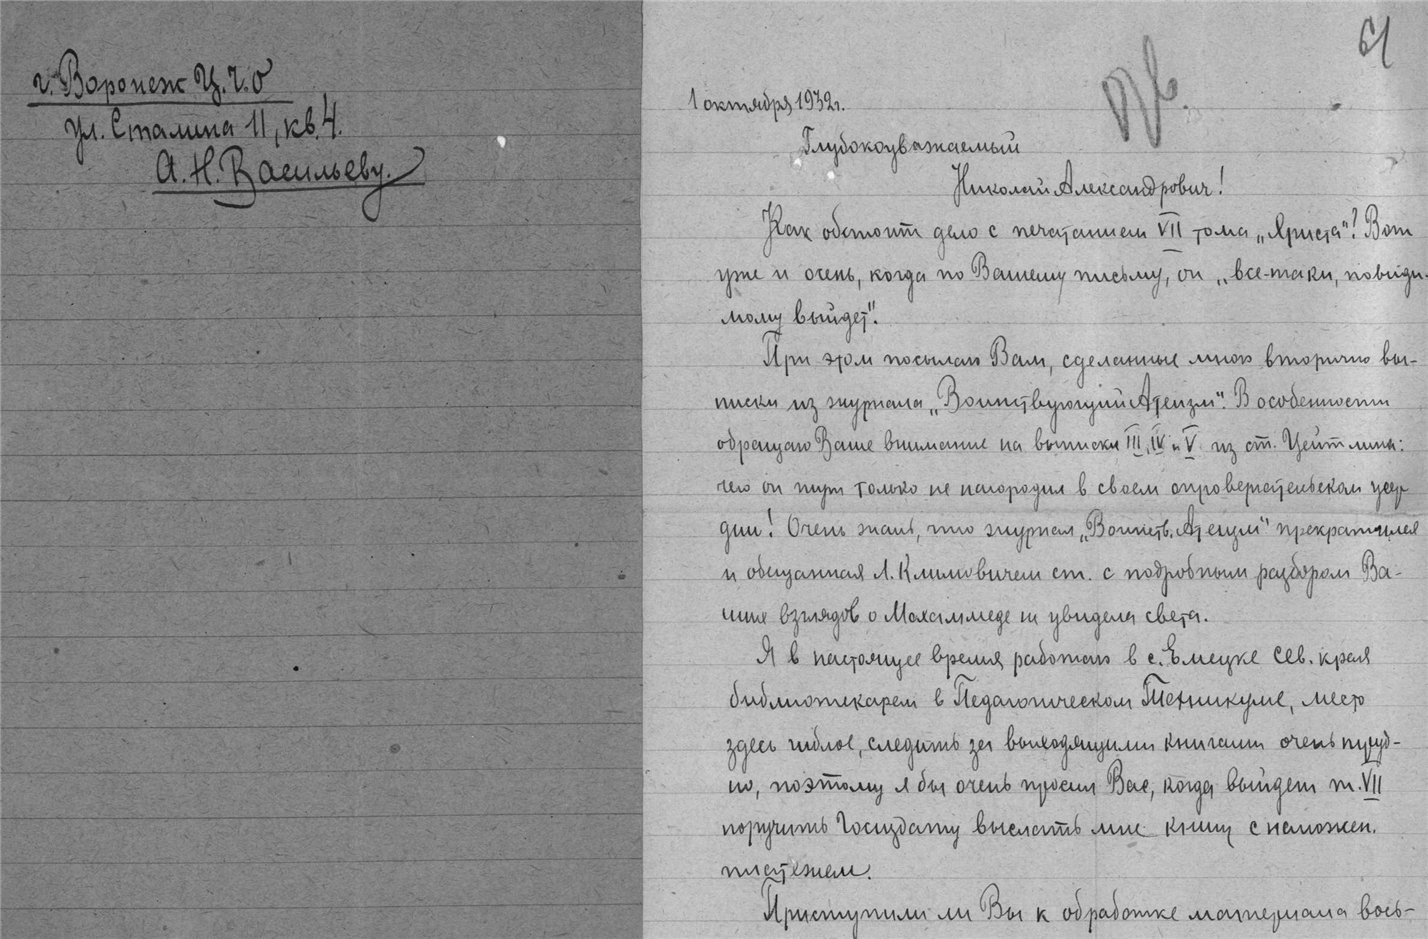 г. Воронеж Ц.Ч.О
ул. Сталина 11, кв. 4.
А. Н. Васильеву.
61
1 октября 1932 г.
Глубокоуважаемый
Николай Александрович!
Как обстоит дело с печатанием VII тома „Христа"? Вот
уже и осень, когда по Вашему письму, он „все-таки, повиди-
мому выйдет".
При этом посылаю Вам, сделанные мною вторично вы-
писки из журнала „Воинствующий Атеизм". В особенности
обращаю Ваше внимание на выписки III, IV и V из ст. Цейтлина:
чего он тут только не нагородил в своем опровергательском усер-
дии! Очень жаль, что журнал „Воинств. Атеизм" прекратился
и обещанная Л. Климовичем ст. с подробным разбором Ва-
ших взглядов о Мохаммеде не увидела света.
Я в настоящее время работаю в с. Емецке Сев. края
библиотекарем в Педагогическом Техникуме, место
здесь гиблое, следить за выходящими книгами очень труд-
но, поэтому я бы очень просил Вас, когда выйдет т. VII
поручить Госиздату выслать мне книгу с наложен.
платежем.
Приступили ли Вы к обработке материала вось-